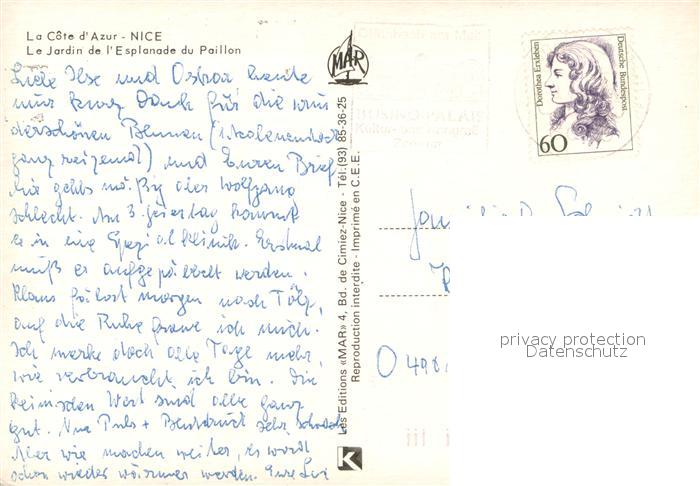 La Côte d'Azur - NICE
Le Jardin de l'Esplanade du Paillon
Liebe Ilse und Oskar heute
nur kurz Dank für die wun
derschönen Blumen (
ganz reizend) und Euren Brief
Mir gehts mäßig aber Wolfgang
schlecht. Am 3. Feiertag kommt
er in eine Spezialklinik. Erstmal
muß er aufgepäppelt werden.
Klaus fährt morgen nach Tölz,
auf die Ruhe freue ich mich.
Ich merke doch alle Tage mehr,
wie verbraucht ich bin. Die
Werte sind alle ganz
gut. Nur Puls + Blutdruck sehr schwach
Aber wir machen weiter, es wird
schon wieder wärmer werden. Eure
MAR
Les Editions «MAR» 4, Bd. de Cimiez-Nice - Tél: (93) 85-36-25
Reproduction interdite - Imprimé en C.E.E.
K
Offenbach am Main
BUSING-PALAIS
Kultur- und Kongreß
Zentrum
Dorothea Erxleben
Deutsche Bundespost
60
Familie
privacy protection
Datenschutz